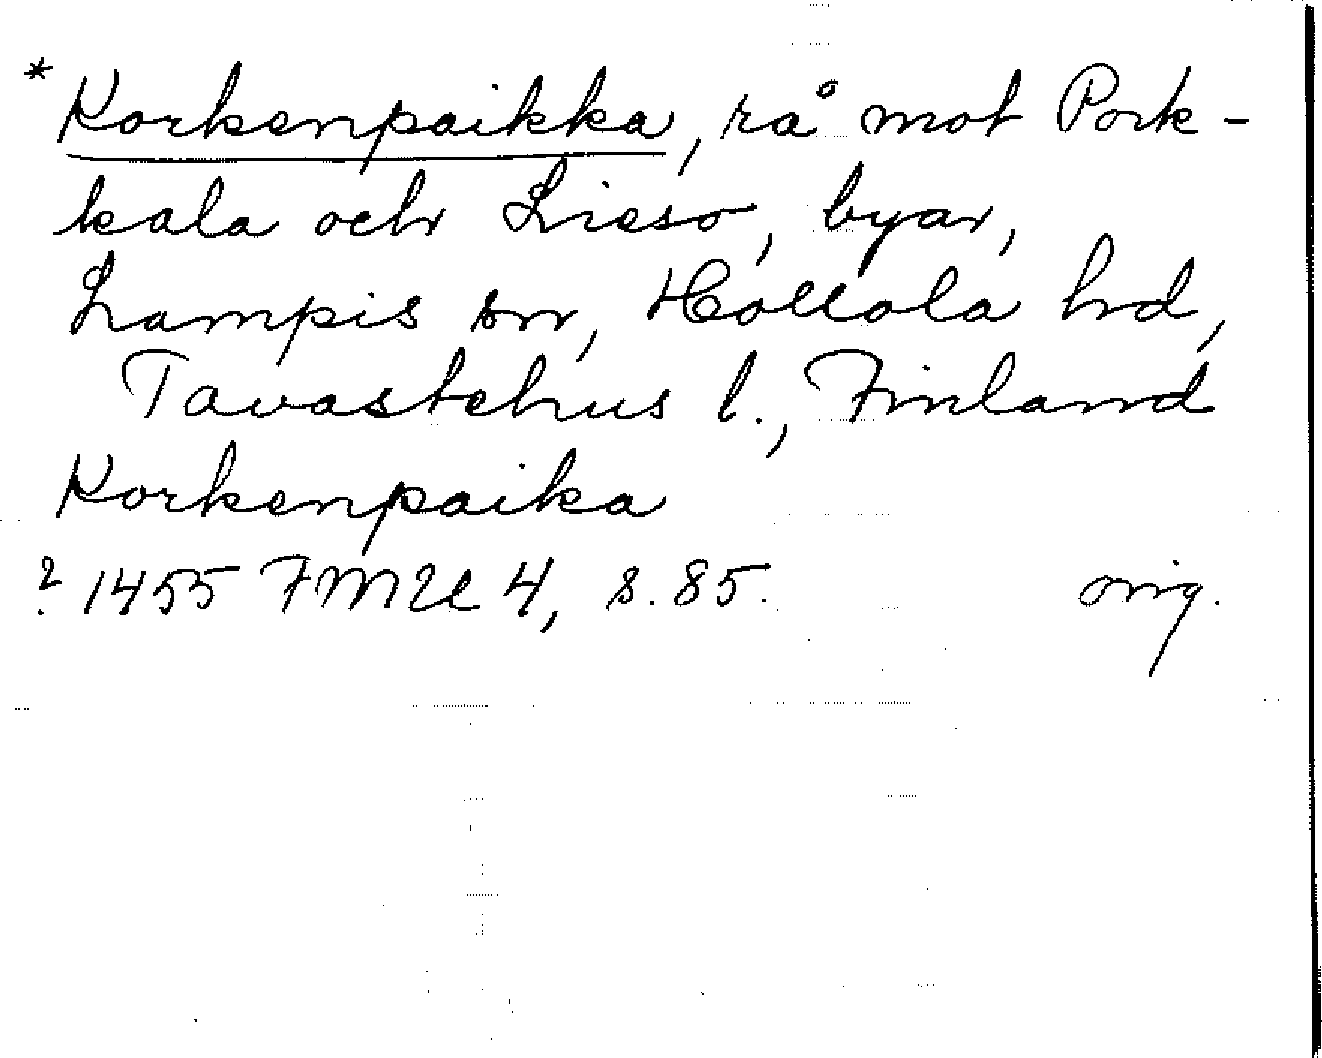 * Korkenpaikka, rå mot Pork-
kala och Lieso, byar,
Lampis sn, Hollola hd,
Tavastehus l., Finland
Korkenpaika
? 1455 FMU 4, s. 85. orig.